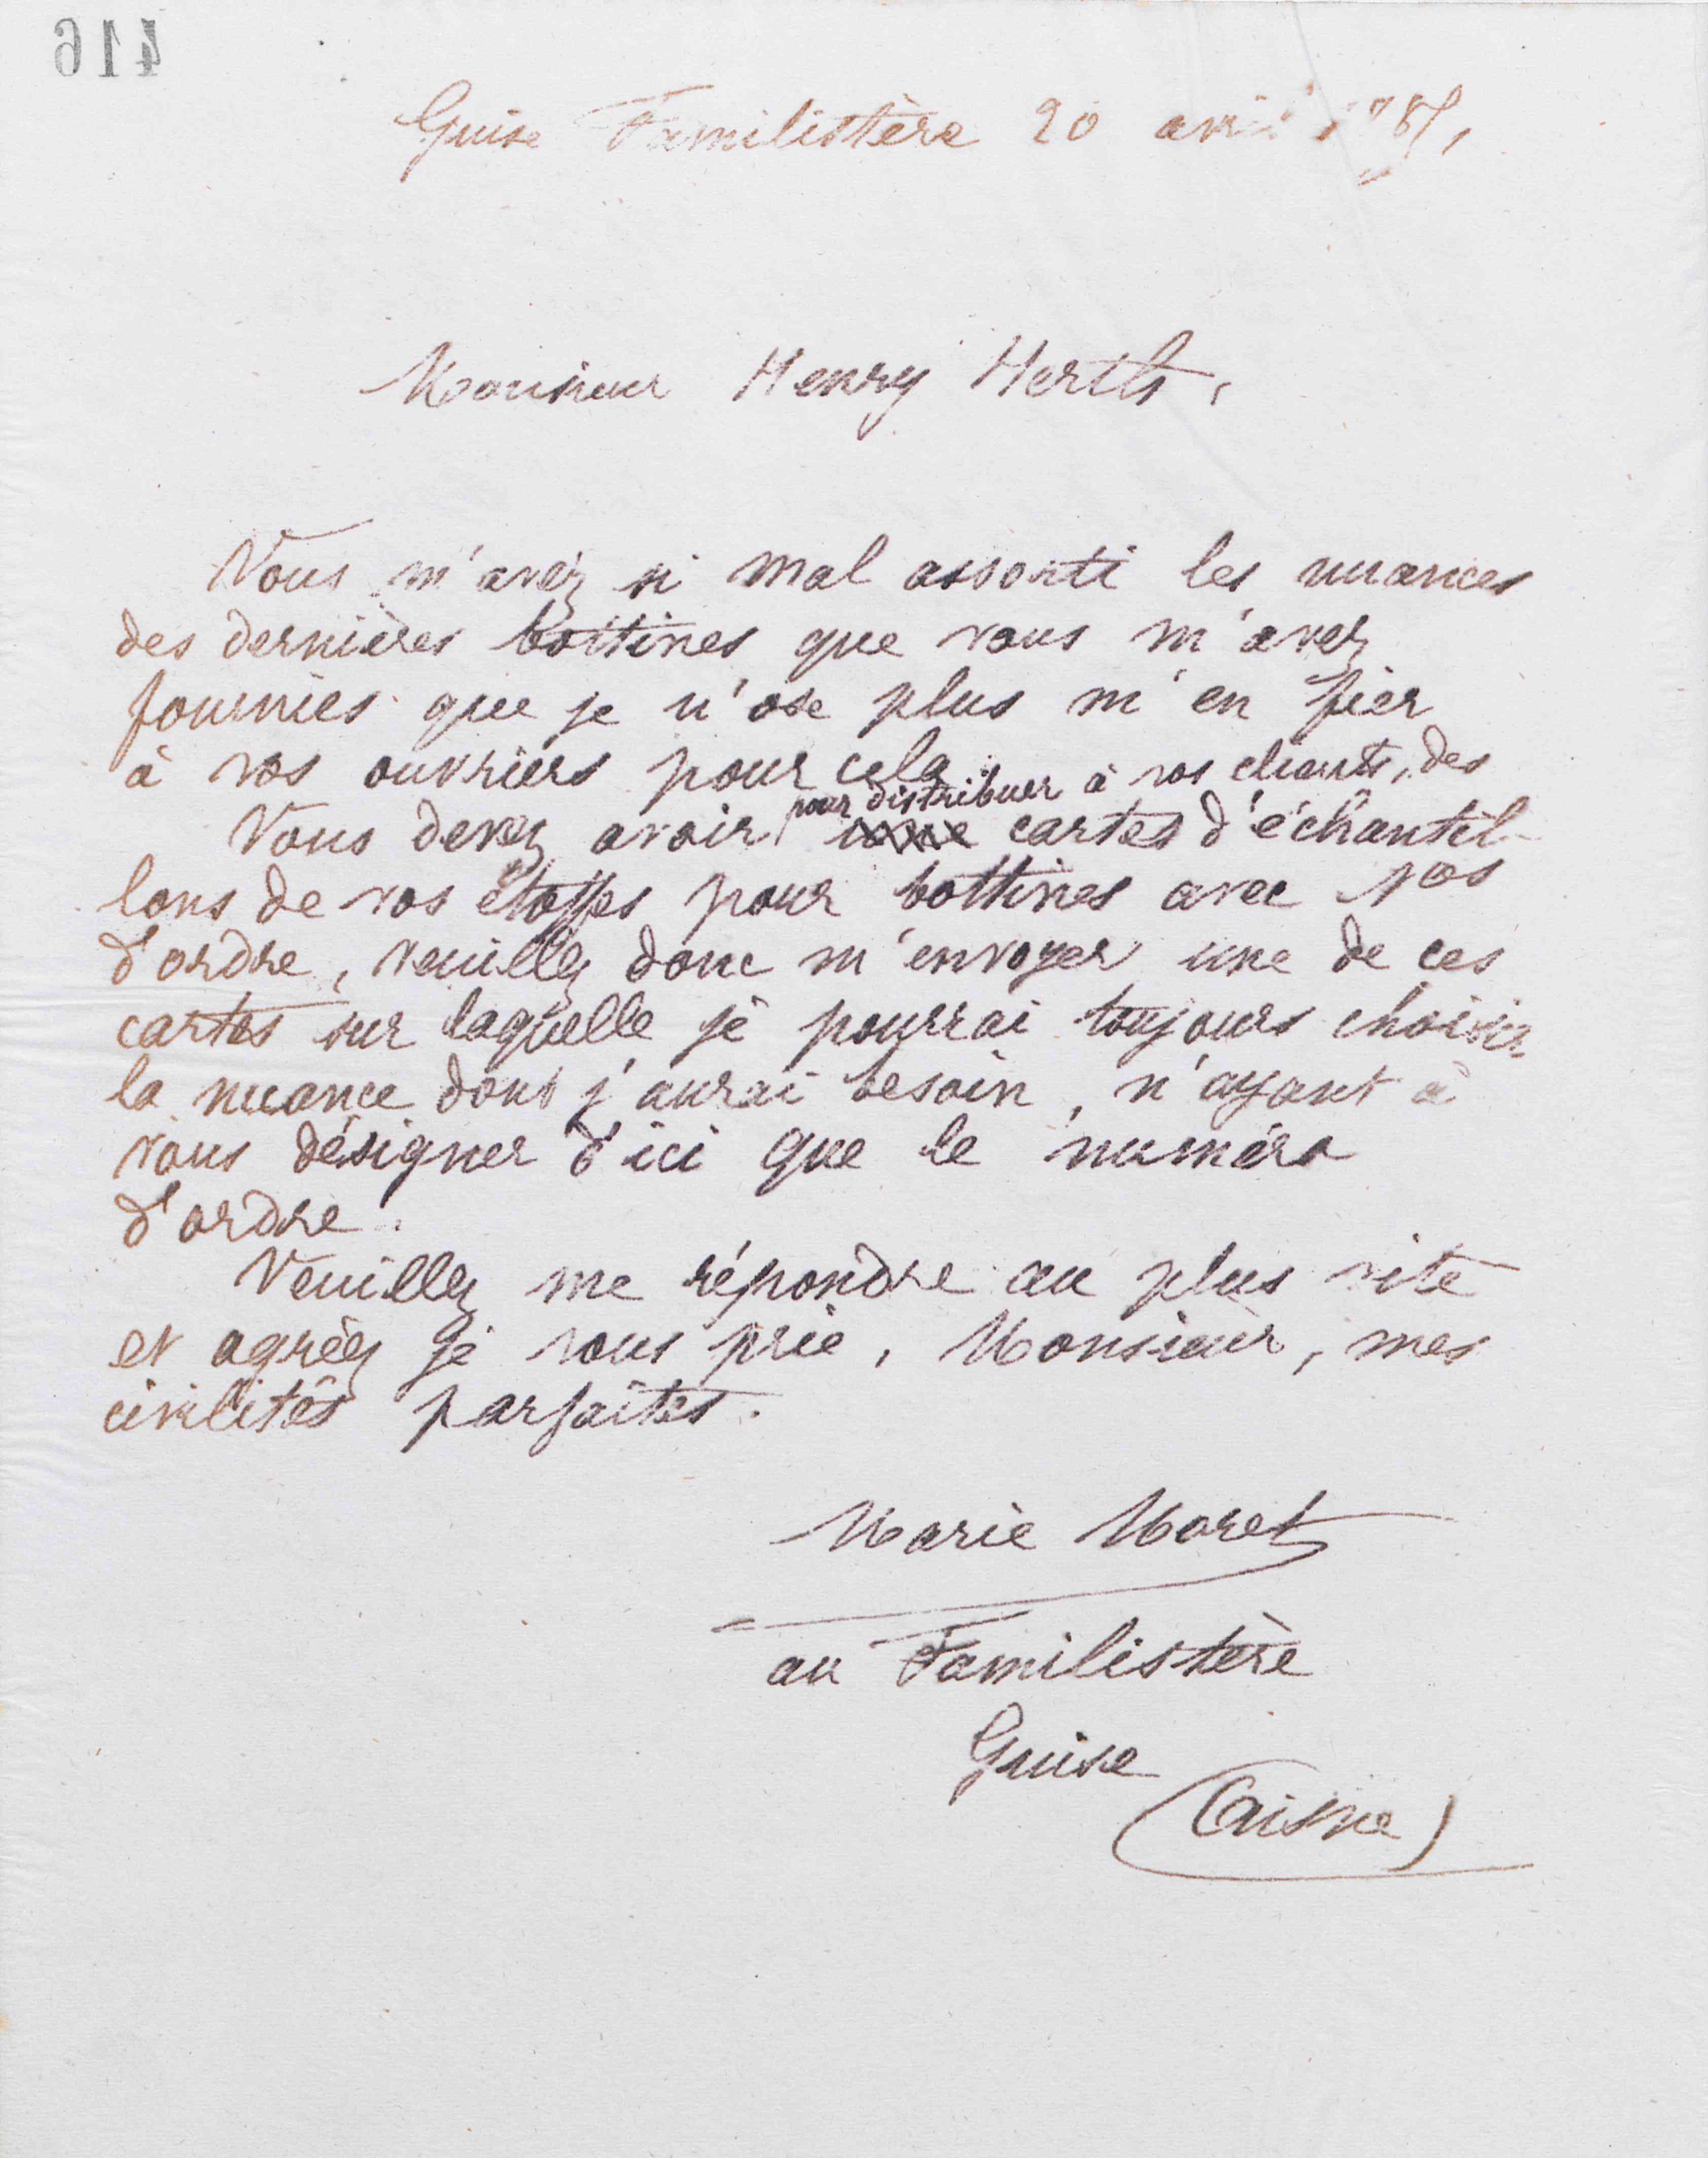 416
Guise Familistère 20 avril
Monsieur Henry Herth,
Vous m'avez si mal assorti les nuances
des dernières bottines que vous m'avez
fournies que je n'ose plus m'en fier
à vos ouvriers pour cela.
pour distribuer à vos clients, des
Vous devez avoir une cartes d'échantil-
lons de vos étoffes pour bottines avec Nos
d'ordre, veuillez donc m'envoyer une de ces
cartes sur laquelle je pourrai toujours choisir
la nuance dont j'aurai besoin, n'ayant à
vous désigner d'ici que le numéro
d'ordre.
Veuillez me répondre au plus vite
et agréez je vous prie, Monsieur, mes
civilités parfaites.
Marie Moret
au Familistère
Guise
(Aisne)